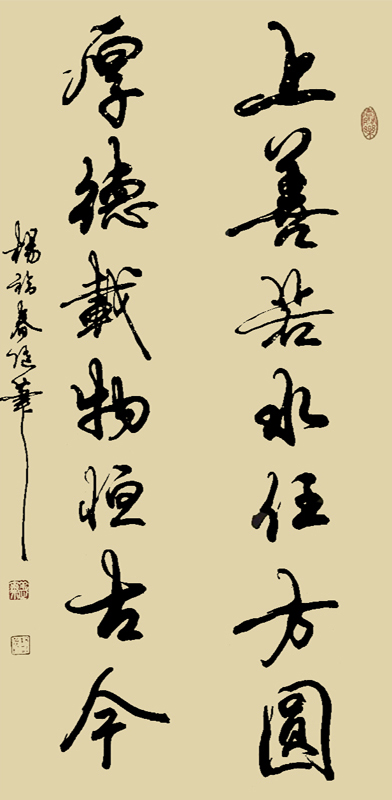 上善若水任方圓
厚德載物恒古今
楊福春信筆